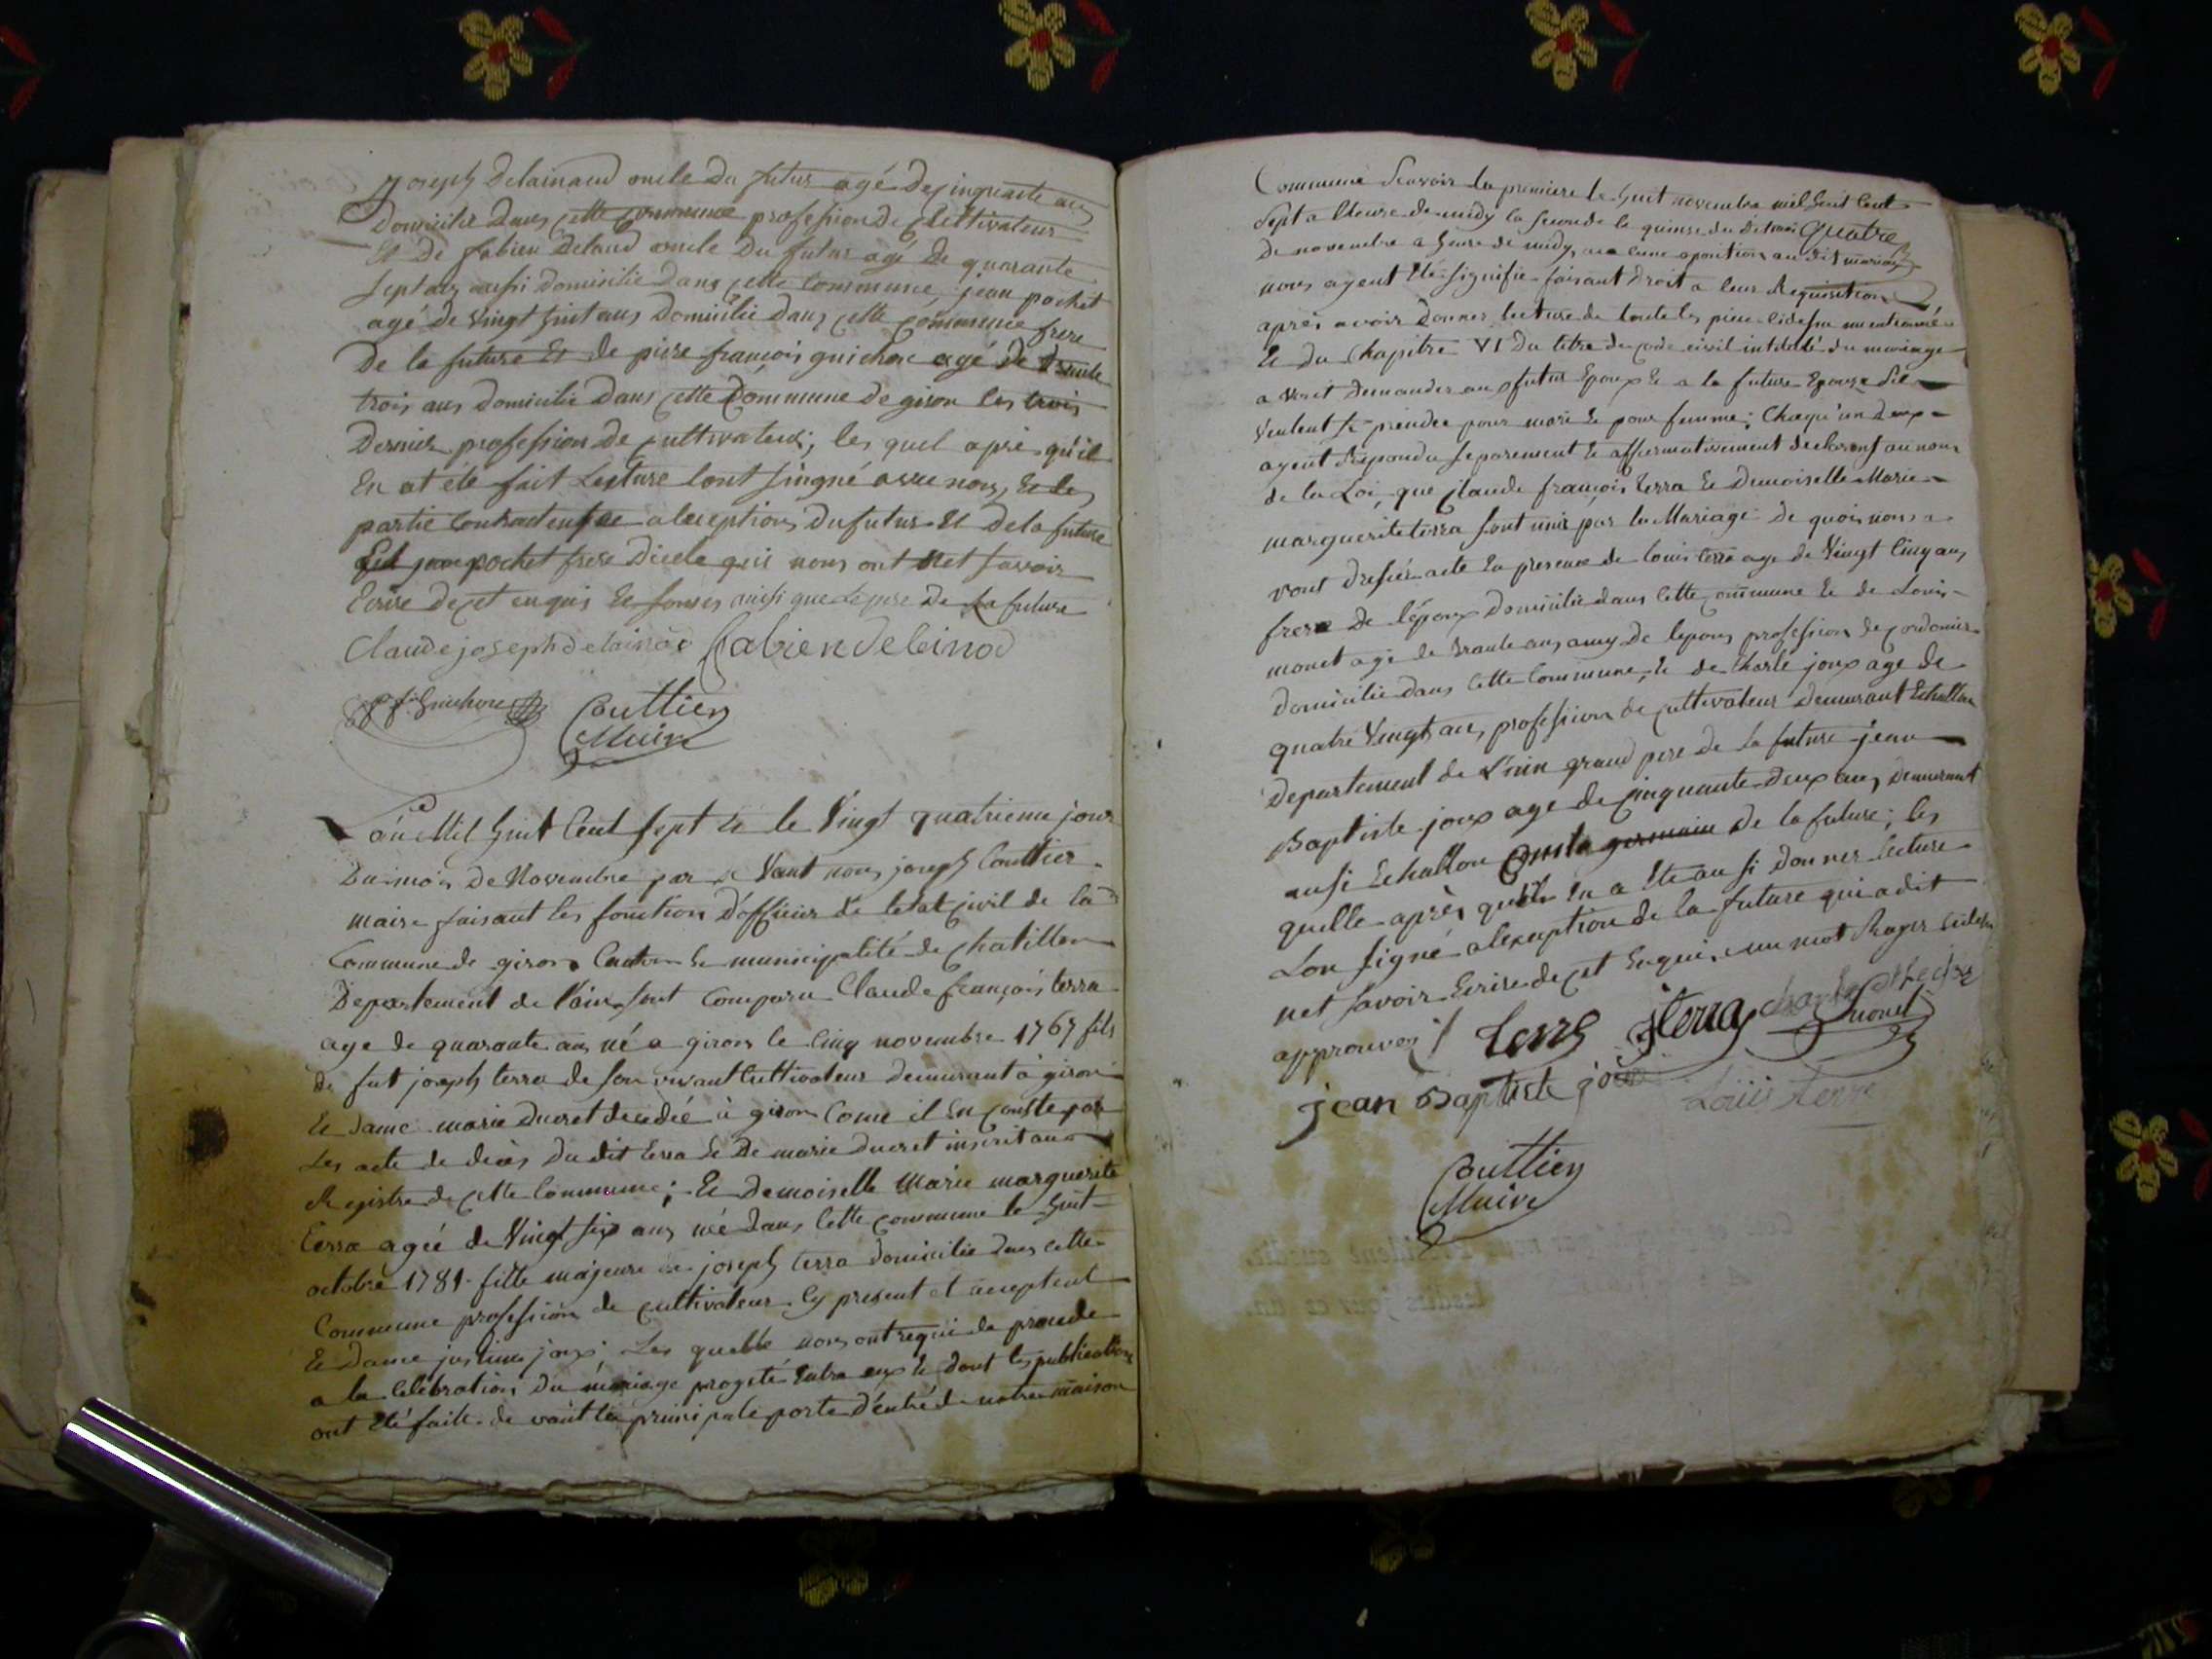 Joseph Delainaud oncle du futur agé de cinquante ans
Domicilie Dans cette Commune profession de Cultivateur
Et De fabien Delaud oncle Du futur agé De quarante
Sept ans aussi domicilié Dans cette Commune, jean pochet
agé de vingt huit ans Domicilié Dans cette Commune frere
De la future Et de piere françois guichon agé De trante
trois ans Domicilie Dans cette Commune de giron les trois
Dernier profession De cultivateur; les quel aprè qu'il
En at été fait Lecture lont singné avec nous, Et les
partie Contractente alexeption du futur Et De la future
Et jean pochet frere Dicele qui nous ont net savoir
Ecrire De cet enquis Et somes ainsi que le pere De La future
Claude joseph delainod fabien deleinod
p f guichon
Couttier
Maire
L'an Mil huit Cent sept Et le Vingt quatrieme jour
Du mois De Novembre par de Vant nous joseph Couttier
maire faisant les fonction D'officier de letat civil de la
Commune de giron Canton Et municipalité de chatillon
Departement de l'ain sont Comparu Claude françois terra
age de quarante ans né a giron le Cinq novembre 1767 fils
de fut joseph terra de son vivant Cultivateur demeurant à giron
Et dame marie Ducret decedeé à giron Come il en conste par
Les acte de decès Du dit terra Et De marie Ducret inscrit au
Registre de cette Commune; Et Demoiselle Marie marguerite
terra ageé de Vingt six ans neé dans Cette commune le huit
octobre 1781 fille majeure de joseph terra domicilié dans cette
Commune profession de cultivateur Cy present et acceptent
Et dame justine joux. Les quelle nous ont requi de procede
a la Celebration Du mariage progeté Entre eux Et dont les publication
ont Eté faite de vant la principale porte d'entré de notre maison
Commune Scavoir la premiere le huit novembre mil huit Cent
Sept a lheure de midy la seconde le quinse du dit mois
de novembre a heure de midy, aucune oposition au dit mariage
nous ayent Eté signifie faisant Droit a leur Requisition
après avoir Donner lecture de toute les piece cidessu mentionné
Et du Chapitre VI Du titre du code civil intitulé du mariage
avont Demander au futur Epoux Et a la future Epouse Sil
veulent se prendre pour mari Et pour femme; Chaqu'un deux
ayent Repondu separement Et affirmativement declarons au nom
de la Loi que Claude françois terra Et Demoiselle Marie
marguerite terra sont unis par le Mariage De quoi nous a
vont dressés acte En presence de louis terra age de Vingt Cinq ans
frere De l'époux Domicilié dans Cette commune Et de Louis
monet agé de trante ans amy De lepoux profession de cordonier
domicilie dans Cette Commune, Et de Charle joux age de
quatre Vingt ans, profession de cultivateur Demeurant Echallon
Departement de L'ain grand pere de la future jean
Baptiste joux age de cinquante deux ans, demeurant
ausi Echallon germain de la future; les
quelle après qu'il En a Eté ausi donner lecture
Lon signé alexeption de la future qui a dit
net savoir Ecrire de cet Enqui, un mot Rayer cidesu
approuver / terra terra
Monet
jean Baptiste joux
Louis terra
Couttier
Maire